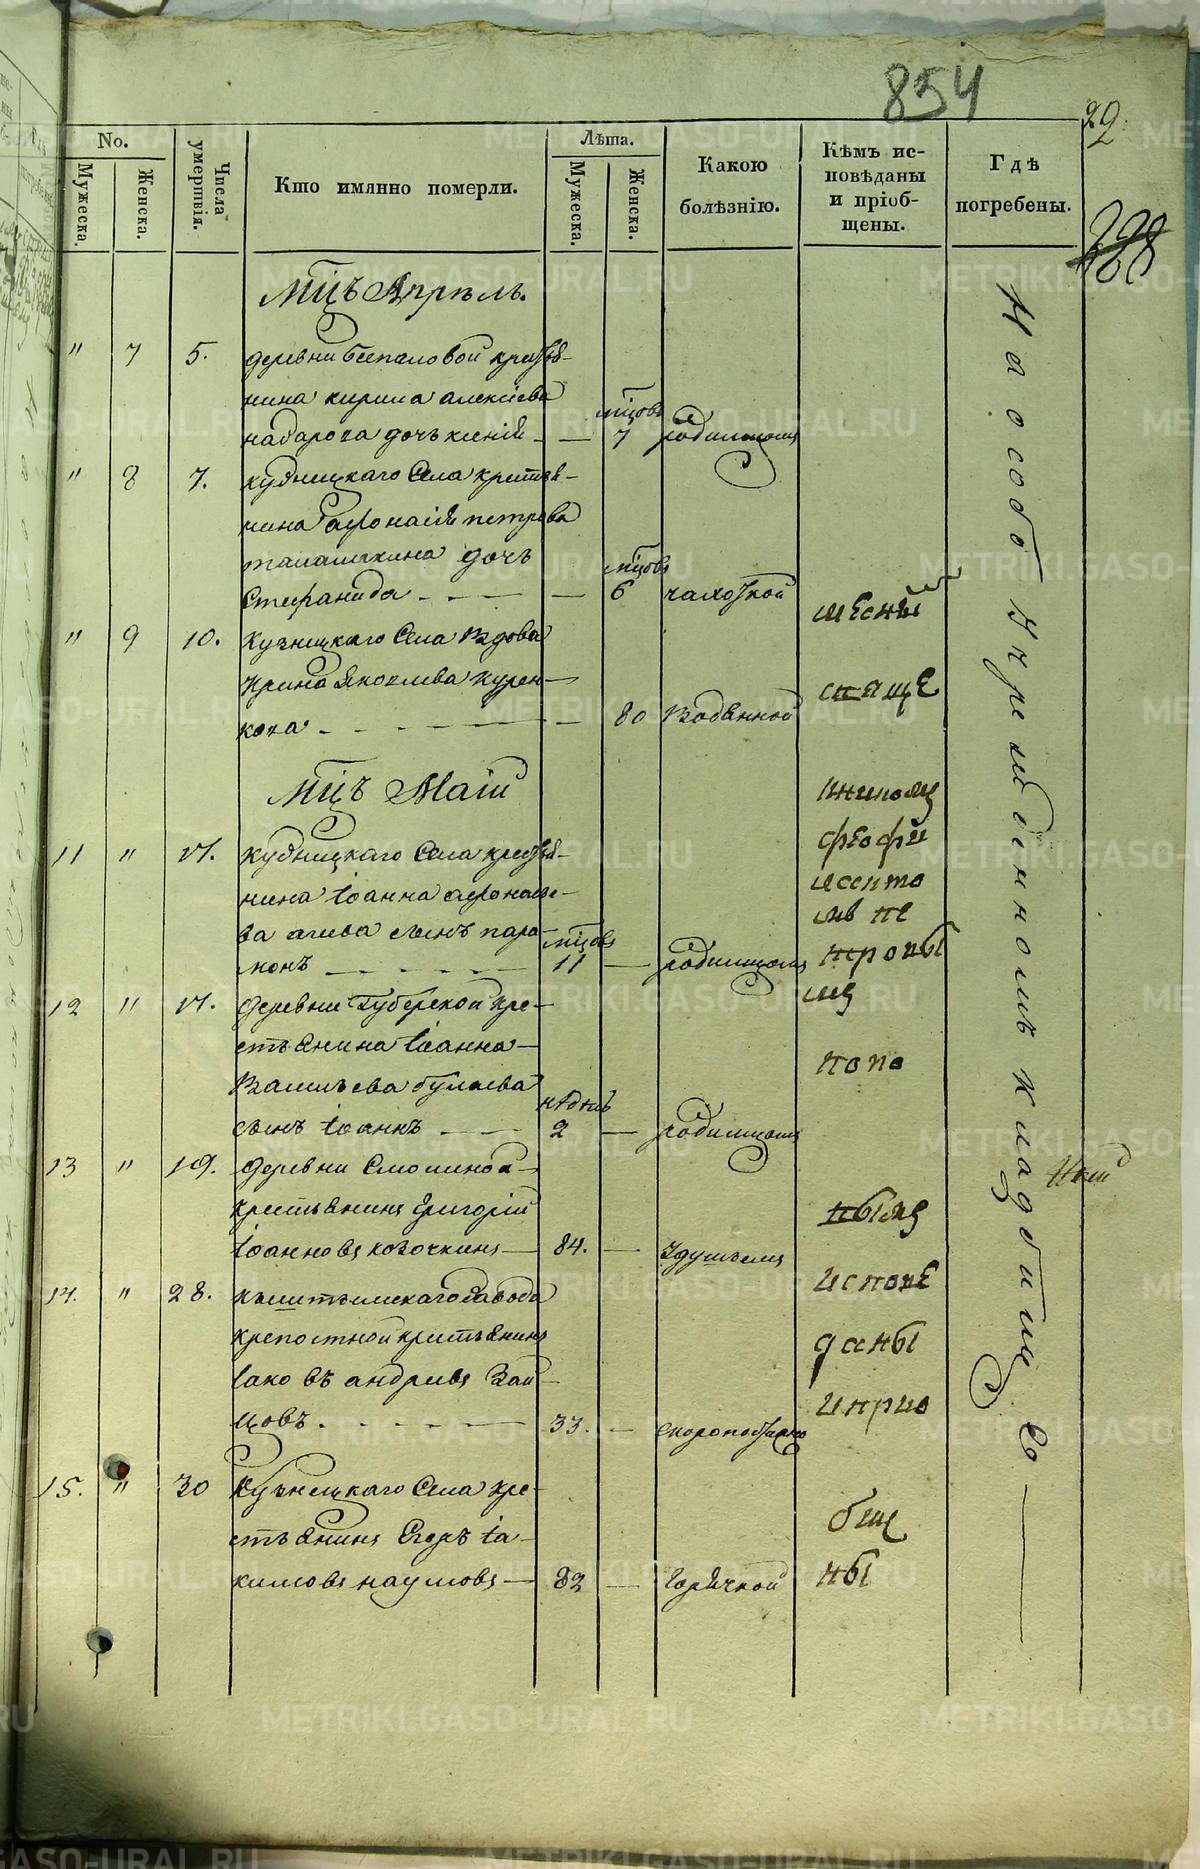 854
29.
No.
Мужеска.
Женска.
Числа умершвія.
Кто имянно померли.
Лѣта.
Мужеска.
Женска.
Какою болѣзнію.
Кѣмъ ис-
повѣданы
и пріоб-
щены.
Гдѣ
погребены.
Мцъ Апрѣль.
" 7 5. деревни Беспаловой кресть-
янина кирила алексіева
дочь ксенія — — мцовъ 7 родимцомъ
" 8 7. кузнецкаго Села крестья-
нина афонасія петрова
талашкина дочь
Стефанида — — мцовъ 6 чахоткой
" 9 10. Кузнецкаго Села Вдова
Ирина Яковлева Курен-
кова — — 80 Водянной
Мцъ Маій
11 " 17. кузнецкаго Села крестья-
нина Іоанна афонась-
ва сынъ пара-
монъ — мцовъ 11 — родимцомъ
12 " 17. деревни Губерской кре-
стьянина Іоанна
Васильева булаева
сынъ Іоаннъ — недѣль 2 — родимцомъ
13 " 19. деревни Смолиной
крестьянинъ Григорій
Іоанновъ козочкинъ — 84. — Удушьемъ
14. " 28. кыштымскаго Завода
крепостной крестьянинъ
Іаковъ андреевъ Зай-
цовъ — 33. — скоропостижно
15. " 30 Кузнецкаго Села кре-
стьянинъ Егоръ Іа-
кимовъ наумовъ — 82 — Горячкой
мѣсны
спаще
нникомъ
феофи
попо
испове
даны
и прио
бще
ны
На особо отведенномъ кладбищѣ